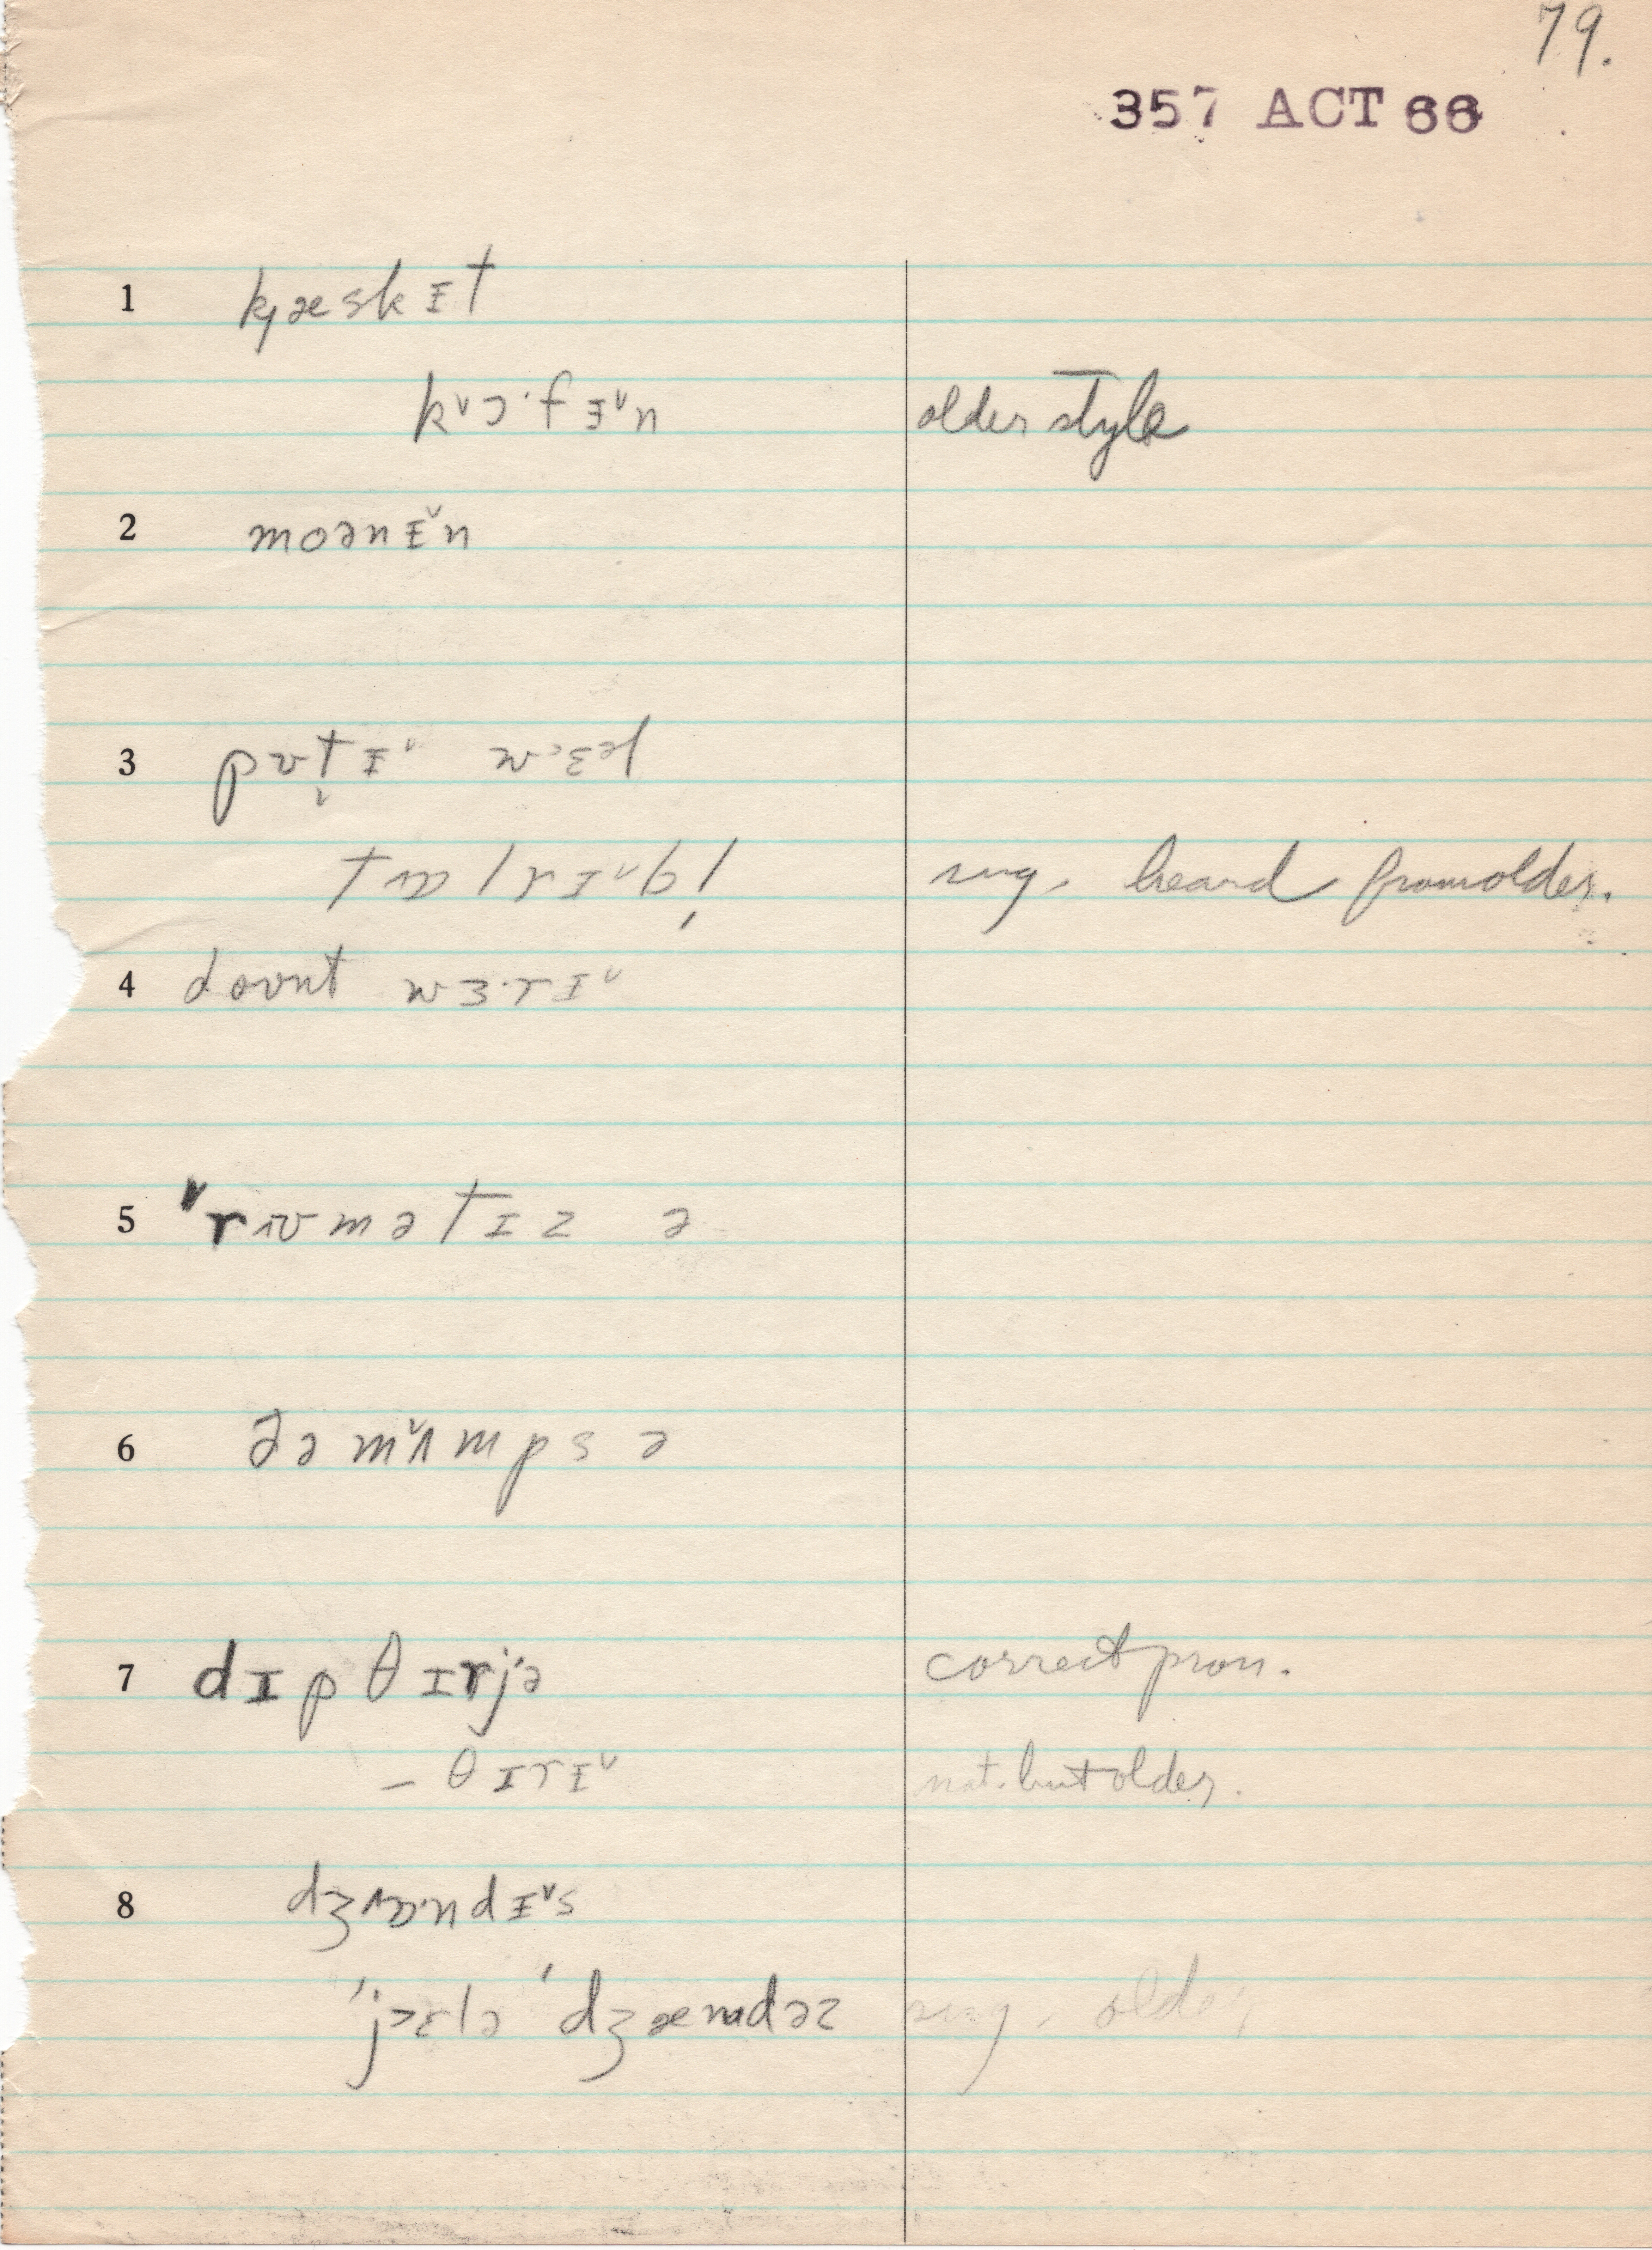 79.
357 ACT 66
1 kjæskɪt
kˇɔ·fɪˇn older style
2 moənɪˇn
3 pʊt̬ɪˇ wɛəl
sug. heard from older.
4 doʊnt wɜ·rɪˇ
5 ˇrʊmətɪz ə
6 ðə mˇʌmps ə
7 dɪpθɪrjə correct pron.
– θɪrɪˇ nat. but older.
8 dʒɒ·ndɪˇs
ˈjɛlə ˈdʒændəz sug. older